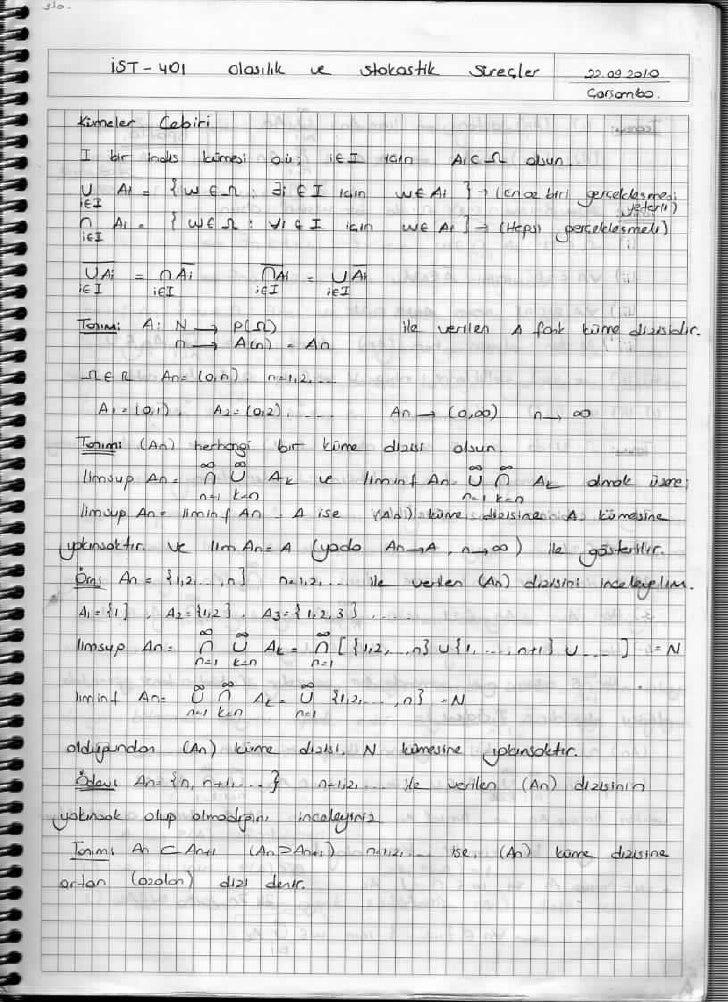 İST-401 Olasılık ve Stokastik Süreçler 22.09.2010
Çarşamba.
Kümeler Cebiri
I bir indis kümesi o.ü; i∈I için Ai⊂Ω olsun
∪ Ai = {w∈Ω : ∃i∈I için w∈Ai} → (En az biri gerçekleşmesi yeterli)
i∈I
∩ Ai = {w∈Ω : ∀i∈I için w∈Ai} → (Hepsi gerçekleşmeli)
i∈I
∪Ai = ∩Ai ∩Ai = ∪Ai
i∈I i∈I i∈I i∈I
Tanım: A: N → P(Ω) ile verilen A fonk küme dizisidir.
n → A(n) = An
Ω∈R An=(0,n), n=1,2,...
A1=(0,1), A2=(0,2), .... An → (0,∞) n→∞
Tanım: (An) herhangi bir küme dizisi olsun.
limsup An= ∩ ∪ Ak ve liminf An= ∪ ∩ Ak olmak üzere;
limsup An= liminf An = A ise (An) küme dizisine A kümesine
yakınsaktır. ve lim An=A (yada An→A, n→∞) ile gösterilir.
Örn: An = {1,2,...,n} n=1,2,... ile verilen (An) dizisini inceleyelim.
A1={1}, A2={1,2}, A3={1,2,3}, ....
limsup An= ∩ ∪ Ak= ∩ [{1,2,...,n} ∪ {1,...,n+1} ∪ ....] = N
liminf An= ∪ ∩ Ak= ∪ {1,2,...,n} = N
olduğundan (An) küme dizisi, N kümesine yakınsaktır.
Ödev: An={n, n+1,....} n=1,2,... ile verilen (An) dizisinin
yakınsak olup olmadığını inceleyiniz
Tanım: An ⊂ An+1 (An⊃An+1) n=1,2,... ise, (An) küme dizisine
artan (azalan) dizi denir.